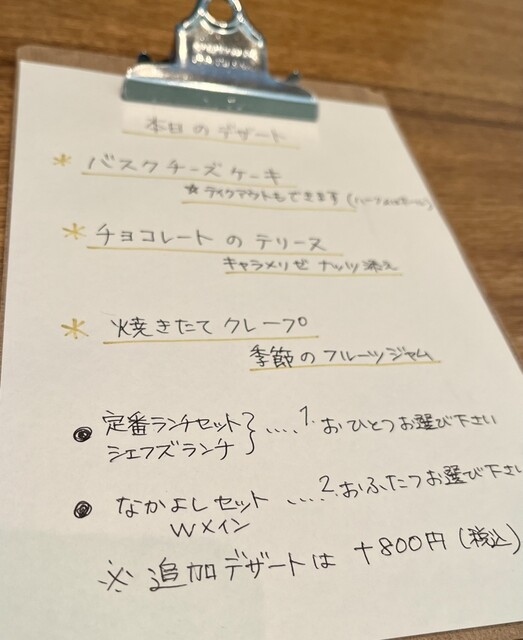 本日のデザート
* バスクチーズケーキ
☆ テイクアウトもできます (ハーフorホール)
* チョコレートのテリーヌ
キャラメリゼ ナッツ添え
* 焼きたてクレープ
季節のフルーツジャム
● 定番ランチセット
シェフズランチ } .... 1. おひとつお選び下さい
● なかよしセット .... 2. おふたつお選び下さい
Wメイン
※ 追加デザートは +800円 (税込)